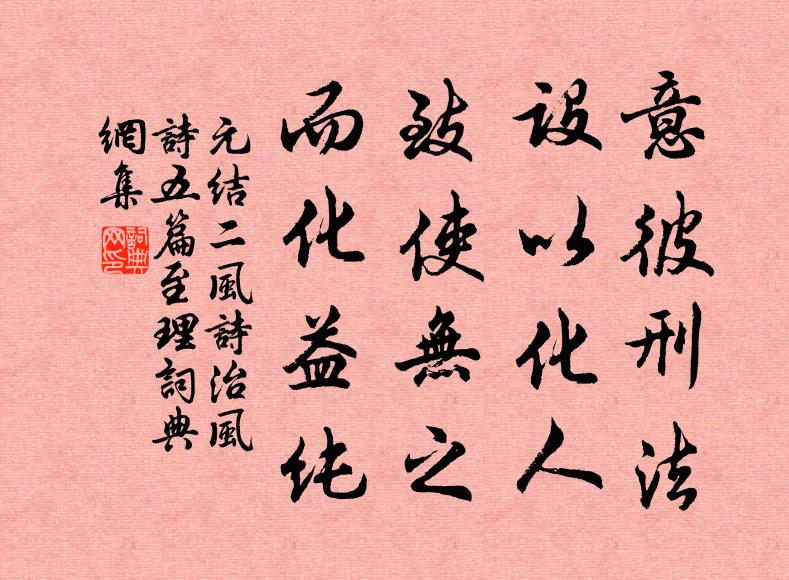 意彼刑法
設以化人
致使無之
而化益純
元结二風詩治風
詩五篇至理詞典
網集
詞典網印